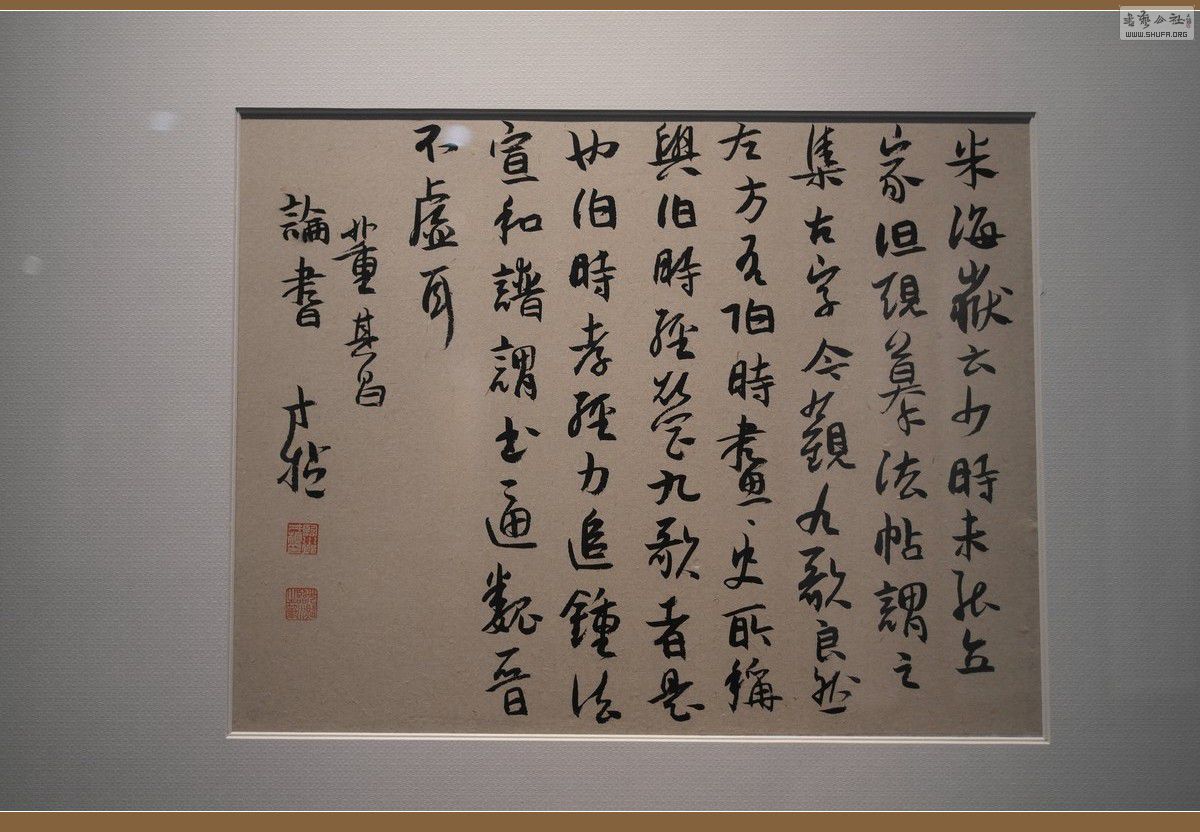 米海嶽云少時未能立
家但規摹法帖謂之
集古字今觀九歌良然
左方有伯時畫、史所稱
與伯時經營九歌者是
也伯時孝經力追鍾法
宣和譜謂書逼魏晉
不虛耳
董其昌
論書
书艺公社
WWW.SHUFA.ORG